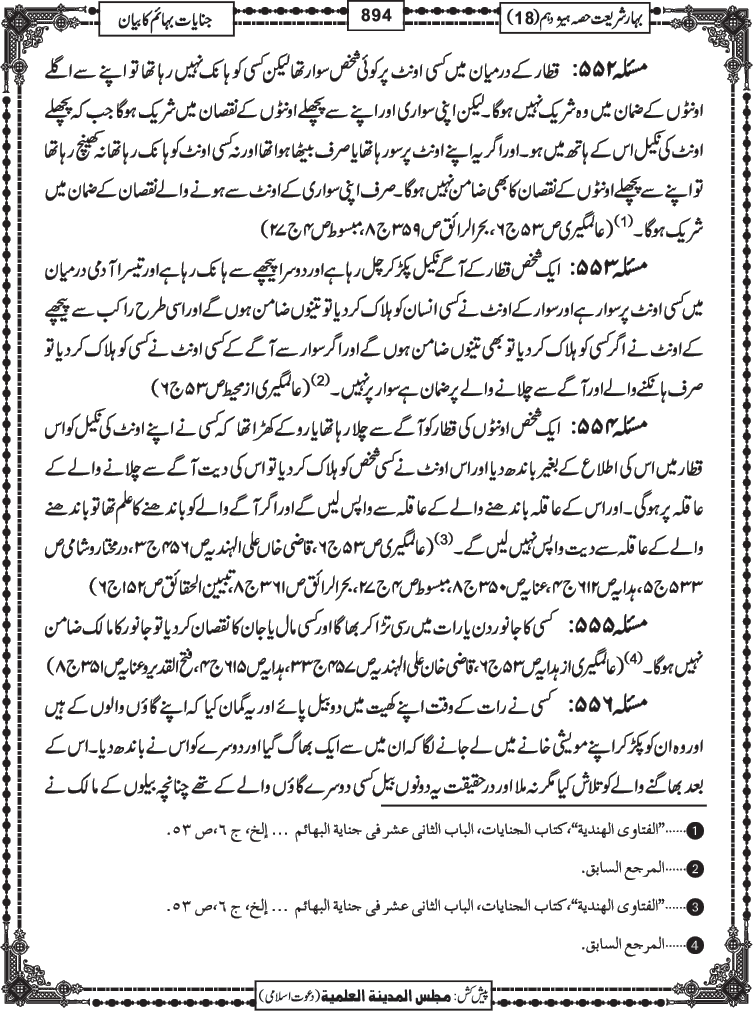 بہار شریعت حصہ ہیژدہم (18)
894
جنایات بہائم کا بیان
مسئلہ ۵۵۲: قطار کے درمیان میں کسی اونٹ پر کوئی شخص سوار تھا لیکن کسی کو ہانک نہیں رہا تھا تو اپنے سے اگلے
اونٹوں کے ضمان میں وہ شریک نہیں ہوگا۔ لیکن اپنی سواری اور اپنے سے پچھلے اونٹوں کے نقصان میں شریک ہوگا جب کہ پچھلے
اونٹ کی نکیل اس کے ہاتھ میں ہو۔ اور اگر یہ اپنے اونٹ پر سو رہا تھا یا صرف بیٹھا ہوا تھا اور نہ کسی اونٹ کو ہانک رہا تھا نہ کھینچ رہا تھا
تو اپنے سے پچھلے اونٹوں کے نقصان کا بھی ضامن نہیں ہوگا۔ صرف اپنی سواری کے اونٹ سے ہونے والے نقصان کے ضمان میں
شریک ہوگا۔(1) (عالمگیری ص ۵۳ ج ۶، بحر الرائق ص ۳۵۹ ج ۸، مبسوط ص ۴ ج ۲۷)
مسئلہ ۵۵۳: ایک شخص قطار کے آگے نکیل پکڑ کر چل رہا ہے اور دوسرا پیچھے سے ہانک رہا ہے اور تیسرا آدمی درمیان
میں کسی اونٹ پر سوار ہے اور سوار کے اونٹ نے کسی انسان کو ہلاک کر دیا تو تینوں ضامن ہوں گے اور اسی طرح راکب سے پیچھے
کے اونٹ نے اگر کسی کو ہلاک کر دیا تو بھی تینوں ضامن ہوں گے اور اگر سوار سے آگے کے کسی اونٹ نے کسی کو ہلاک کر دیا تو
صرف ہانکنے والے اور آگے سے چلانے والے پر ضمان ہے سوار پر نہیں۔(2) (عالمگیری از محیط ص ۵۳ ج ۶)
مسئلہ ۵۵۴: ایک شخص اونٹوں کی قطار کو آگے سے چلا رہا تھا یا روکے کھڑا تھا کہ کسی نے اپنے اونٹ کی نکیل کو اس
قطار میں اس کی اطلاع کے بغیر باندھ دیا اور اس اونٹ نے کسی شخص کو ہلاک کر دیا تو اس کی دیت آگے سے چلانے والے کے
عاقلہ پر ہوگی۔ اور اس کے عاقلہ باندھنے والے کے عاقلہ سے واپس لیں گے اور اگر آگے والے کو باندھنے کا علم تھا تو باندھنے
والے کے عاقلہ سے دیت واپس نہیں لیں گے۔(3) (عالمگیری ص ۵۳ ج ۶، قاضی خاں علی الہندیہ ص ۴۵۶ ج ۳، درمختار و شامی ص
۵۳۳ ج ۵، ہدایہ ص ۶۱۲ ج ۴، عنایہ ص ۳۵۰ ج ۸، مبسوط ص ۴ ج ۲۷، بحر الرائق ص ۳۶۱ ج ۸، تبیین الحقائق ص ۱۵۲ ج ۶)
مسئلہ ۵۵۵: کسی کا جانور دن یا رات میں رسی تڑا کر بھاگا اور کسی مال یا جان کا نقصان کر دیا تو جانور کا مالک ضامن
نہیں ہوگا۔(4) (عالمگیری از ہدایہ ص ۵۳ ج ۶، قاضی خان علی الہندیہ ص ۴۵۷ ج ۳۳، ہدایہ ص ۶۱۵ ج ۴، فتح القدیر و عنایہ ص ۳۵۱ ج ۸)
مسئلہ ۵۵۶: کسی نے رات کے وقت اپنے کھیت میں دو بیل پائے اور یہ گمان کیا کہ اپنے گاؤں والوں کے ہیں
اور وہ ان کو پکڑ کر اپنے مویشی خانے میں لے جانے لگا کہ ان میں سے ایک بھاگ گیا اور دوسرے کو اس نے باندھ دیا۔ اس کے
بعد بھاگنے والے کو تلاش کیا مگر نہ ملا اور درحقیقت یہ دونوں بیل کسی دوسرے گاؤں والے کے تھے چنانچہ بیلوں کے مالک نے
1......"الفتاوى الهندية"، كتاب الجنايات، الباب الثاني عشر في جناية البهائم ... إلخ، ج ٦، ص ٥٣.
2......المرجع السابق.
3......"الفتاوى الهندية"، كتاب الجنايات، الباب الثاني عشر في جناية البهائم ... إلخ، ج ٦، ص ٥٣.
4......المرجع السابق.
پیش کش: مجلس المدينة العلمية (دعوت اسلامی)